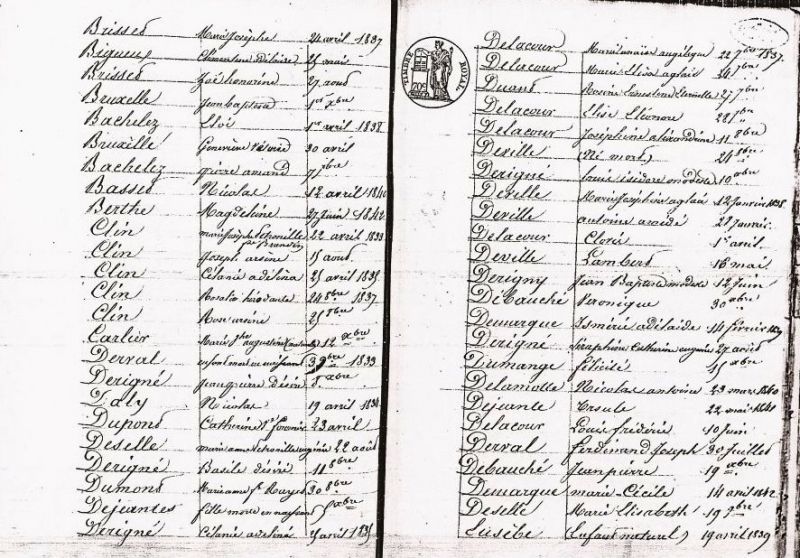 Brissed Marie Josèphe 24 avril 1837
Bigueur Clémentine 25 mai
Brissed Zoé honorine 27 aoud
Bruxelle Jean baptiste 1er xbre
Bachelez Eloi 1er avril 1838
Bruxille Geneviève 30 avril
Bachelez pierre amand 7 7bre
Basses Nicolas 12 avril 1840
Berthe Magdeleine 27 Juin 1842
Clin marie Josèphe 22 avril 1833
Clin Joseph arsène 15 aoud
Clin Célanie adelina 25 avril 1835
Clin Rosalie 24 8bre 1837
Clin Rose ursine 25 8bre
Carlier Marie augustine 12 xbre
Derval enfant mort en naissant 1833
Derigné jean pierre désiré 8 xbre
Daly Nicolas 19 avril 1834
Dupond Catherine 23 avril
Deselle marie anne eugénie 22 aoud
Derigné Basile désiré 11 8bre
Dumond Marie anne 30 8bre
Dejeantes fille morte en naissant 5 xbre
Derigné Célanie adeline avril 1835
TIMBRE ROYAL
70c
Delacour Marie angélique 22 7bre 1837
Delacour Marie Elisa aglaé 24 7bre
Duand Rosine 27 7bre
Delacour Elise Eléonore 28 7bre
Delacour Joséphine alexandrine 11 8bre
Deville (Né mort) 24 8bre
Derigné Louis isidore modeste 10 xbre
Deville Marie Joséphine aglaé 12 Janvier 1838
Deville antoine 21 Janvier
Delacour Cloré 1er avril
Deville Lambert 16 mai
Derigny Jean Baptiste modeste 12 Juin
Débauché Véronique 30 xbre
Demarque Ismérie adélaide 14 février 1839
Derigné Séraphine Catherin eugénie 27 avril
Dumange félicité 15 xbre
Delamotte Nicolas antoine 23 mars 1840
Dejeante Ursule 22 mai 1841
Delacour Louis frédéric 10 Juin
Derval Ferdinand Joseph 30 Juillet
Debauché Jean pierre 19 xbre
Demarque marie-Cécile 14 avril 1842
Deselle Marie Elisabeth 19 7bre
Eusèbe (Enfant naturel) 19 avril 1839